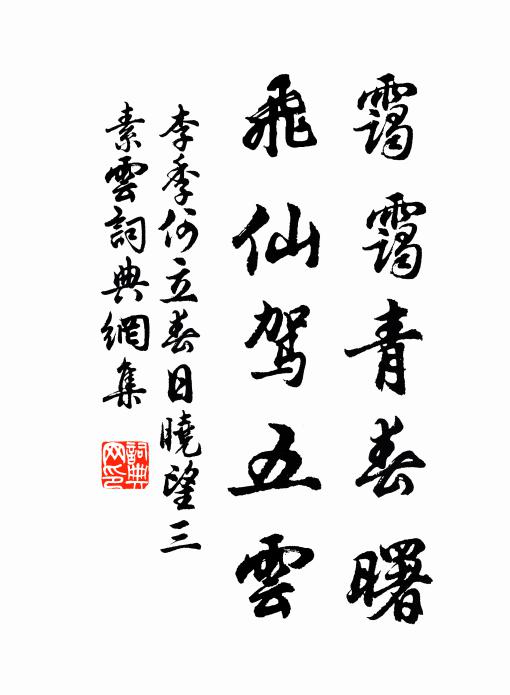 靄靄青春曙
飛仙駕五雲
李季何立春日曉望三
素雲詞典網集
詞典
网印